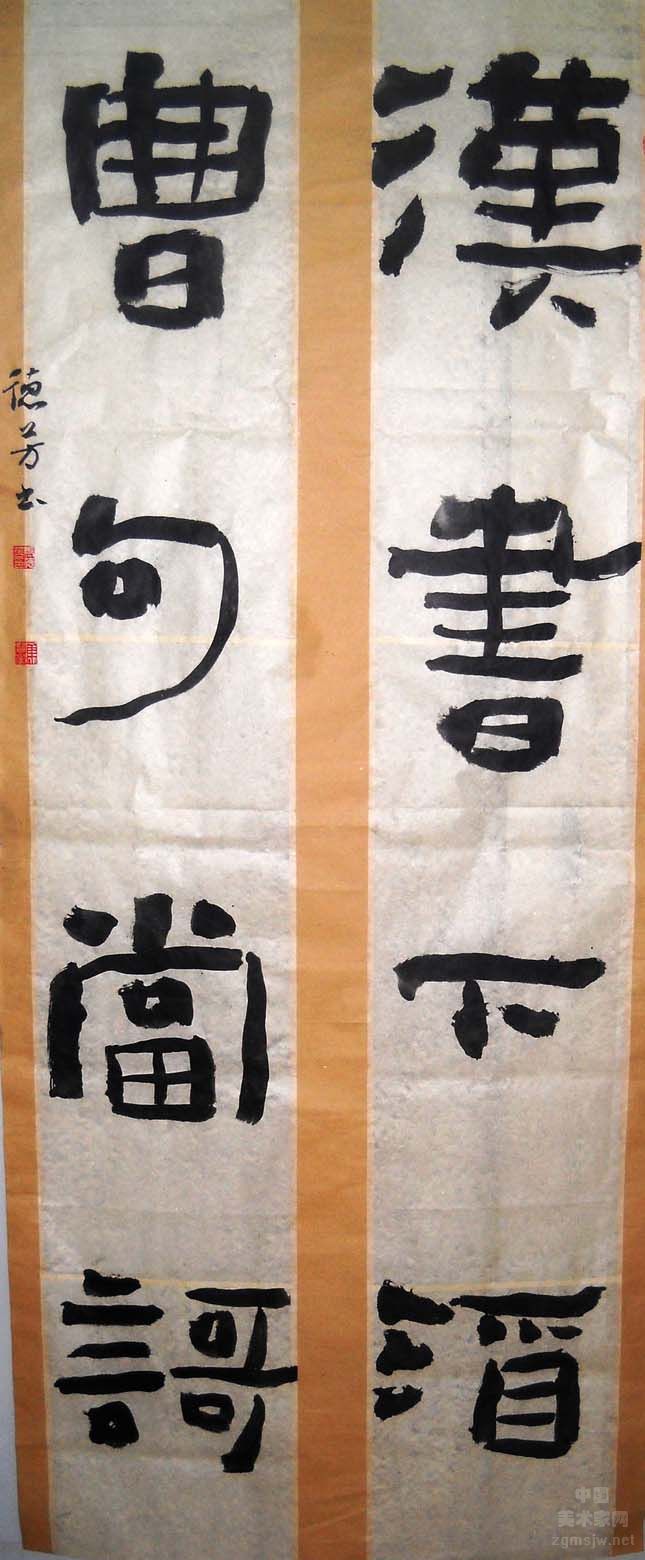 漢書下酒
曹句當謌
德芳书
中国
美术家网
zgmsjw.net